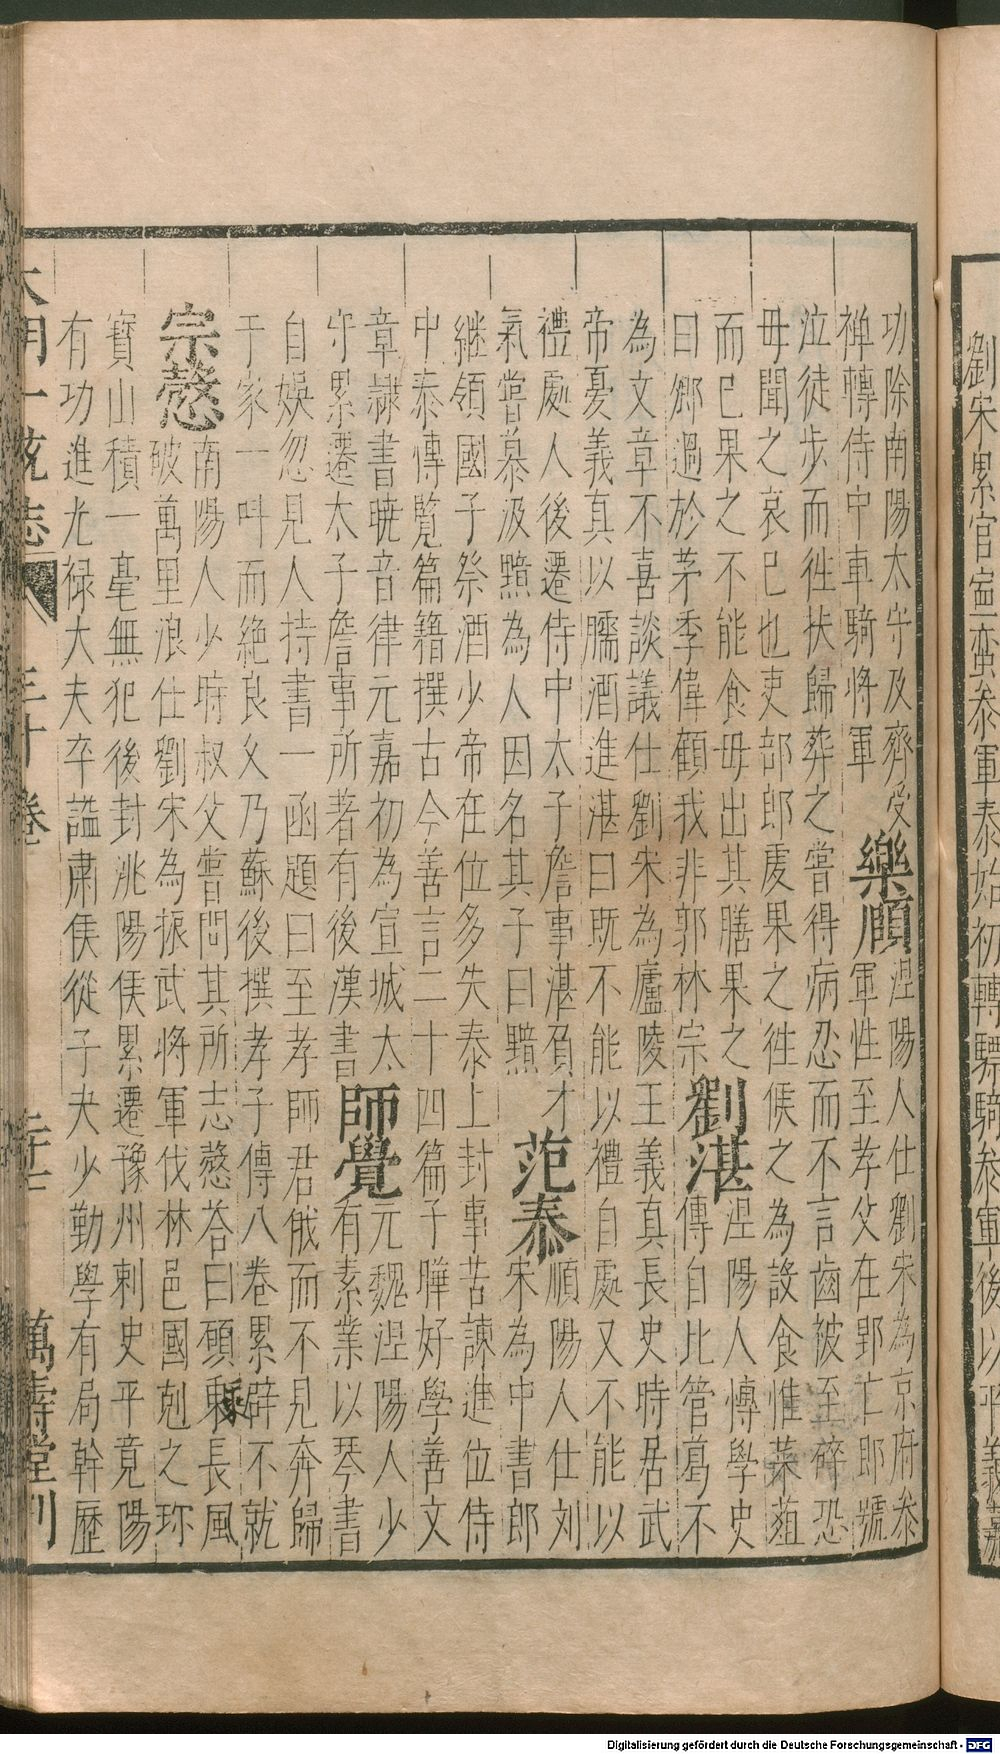 劉宋累官寧蠻參軍泰始初轉驃騎參軍後以平義嘉
功除南陽太守及齊受
禪轉侍中車騎將軍
樂頤
涅陽人仕劉宋為京府參
軍性至孝父在郢亡郎號
泣徒步而徃扶歸葬之嘗得病忍而不言齒被至碎恐
母聞之哀已也吏部郎庾果之徃候之為設食惟菜葅
而已果之不能食母出其膳果之
曰鄉過於茅季偉顧我非郭林宗
劉湛
涅陽人愽學史
傳自比管葛不
為文章不喜談議仕劉宋為廬陵王義真長史時居武
帝憂義真以臑酒進湛曰既不能以禮自處又不能以
禮處人後遷侍中太子詹事湛負才
氣嘗慕汲黯為人因名其子曰黯
范泰
順陽人仕刘
宋為中書郎
継領國子祭酒少帝在位多失泰上封事苦諫進位侍
中泰傳覧篇籍撰古今善言二十四篇子曄好學善文
章隷書暁音律元嘉初為宣城太
守累遷太子詹事所著有後漢書
師覺
元魏涅陽人少
有素業以琴書
自娛忽見人持書一函題曰至孝師君俄而不見奔歸
于家一呌而絶良乆乃蘇後撰孝子傳八卷累辟不就
宗愨
南陽人少時叔父嘗問其所志愨荅曰願乘長風
破萬里浪仕劉宋為振武將軍伐林邑國剋之珎
寳山積一毫無犯後封洮陽侯累遷豫州刺史平竟陽
有功進光禄大夫卒謚肅侯從子夬少勤學有局幹歷
大明一統志
三十卷
萬壽堂刊
Digitalisierung gefördert durch die Deutsche Forschungsgemeinschaft - DFG